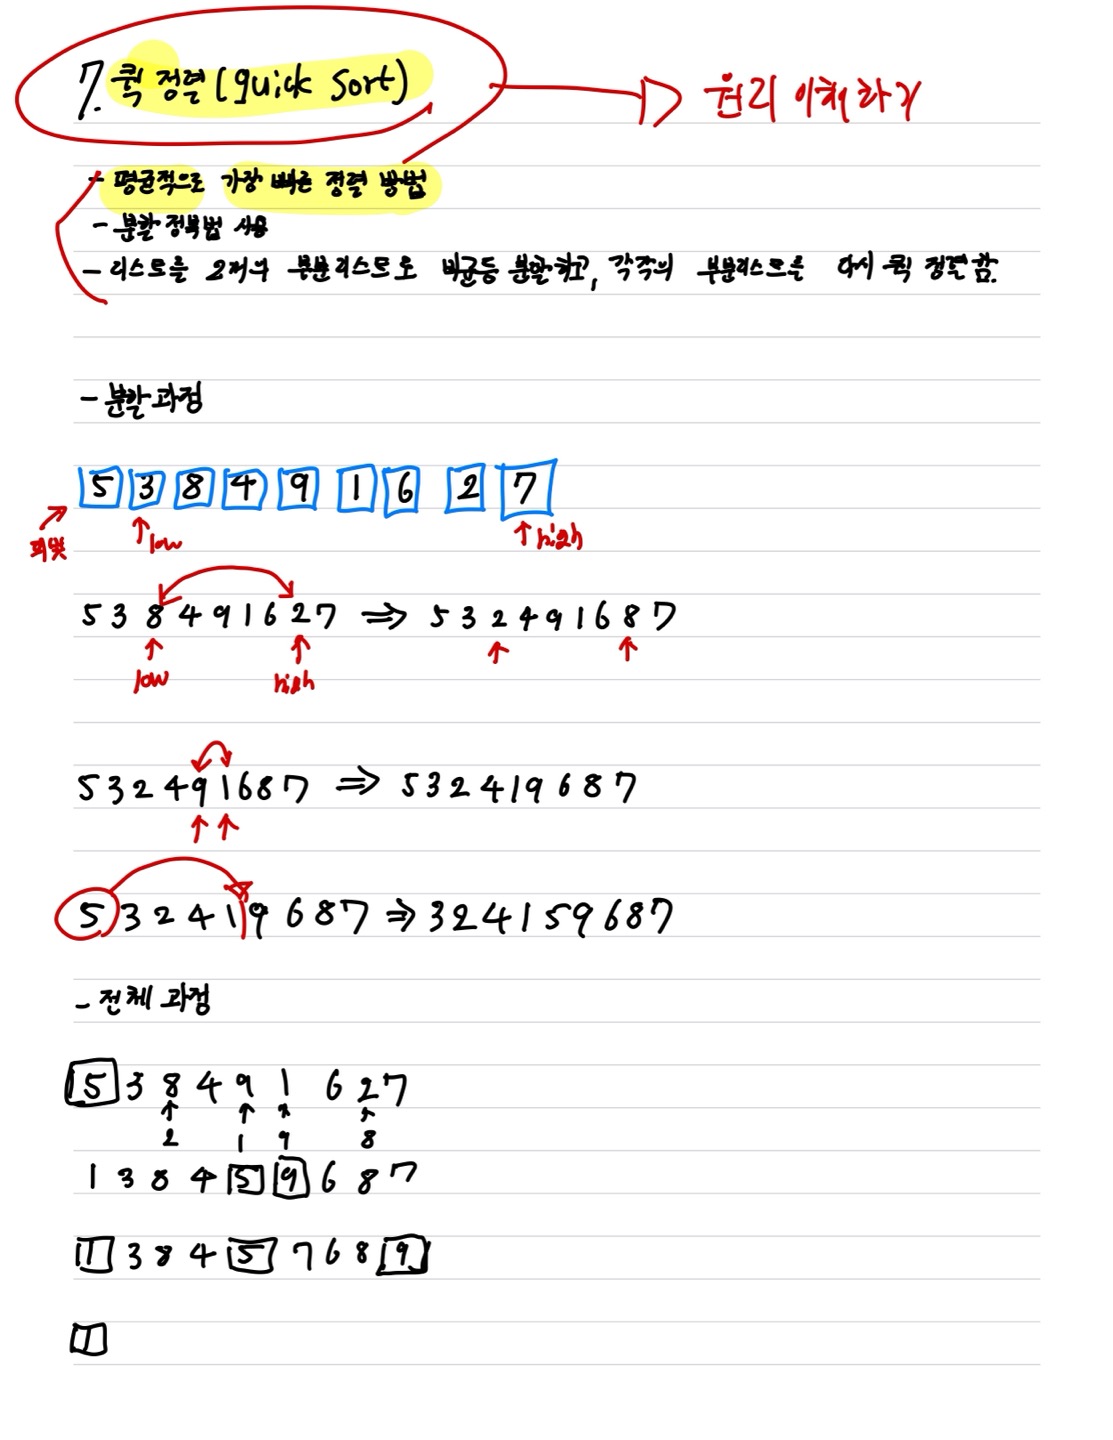 7. 퀵 정렬(quick sort)
원리 이해하기
- 평균적으로 가장 빠른 정렬 방법
- 분할 정복법 사용
- 리스트를 2개의 부분리스트로 비균등 분할하고, 각각의 부분리스트를 다시 퀵 정렬함.
- 분할과정
5 3 8 4 9 1 6 2 7
피벗 low high
5 3 8 4 9 1 6 2 7 ⇒ 5 3 2 4 9 1 6 8 7
low high
5 3 2 4 9 1 6 8 7 ⇒ 5 3 2 4 1 9 6 8 7
5 3 2 4 1 9 6 8 7 ⇒ 3 2 4 1 5 9 6 8 7
- 전체 과정
5 3 8 4 9 1 6 2 7
2 1 9 8
1 3 8 4 5 9 6 8 7
1 3 8 4 5 7 6 8 9
1